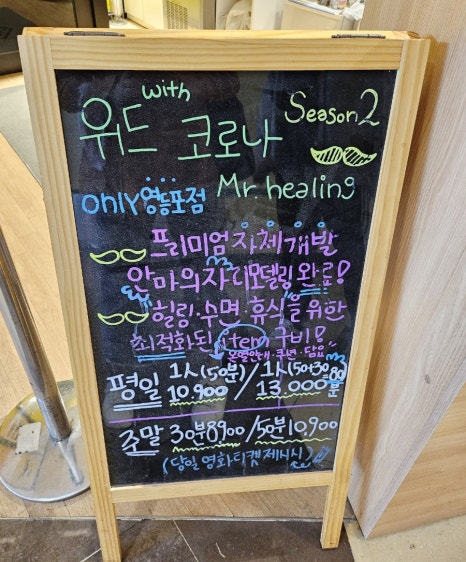 with
위드 코로나
Season2
Mr. healing
only 영등포점
프리미엄 자체개발
안마의자 리모델링 완료!
힐링·수면·휴식을 위한
최적화된 item 구비!
온열안대·쿠션·담요
평일 1人(50분) 10.900 / 1人(50+30 80분) 13.000
주말 30분8900 / 50분10,900
(당일 영화티켓 제시시)